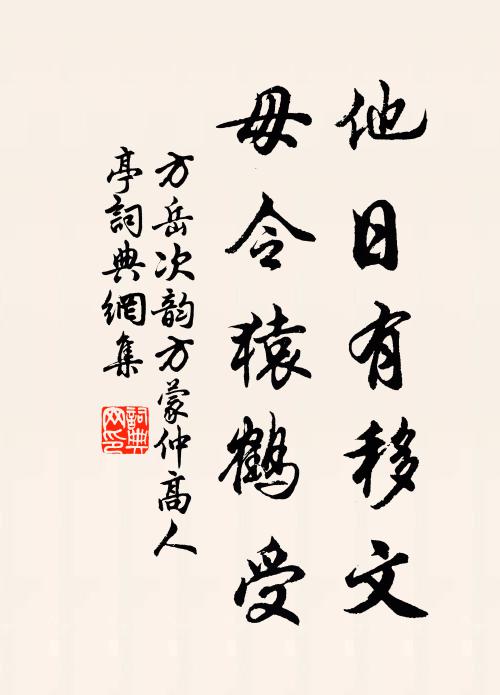 他日有移文
毋令猿鹤受
方岳次韵方蒙仲高人
亭詞典網集
詞典
网印